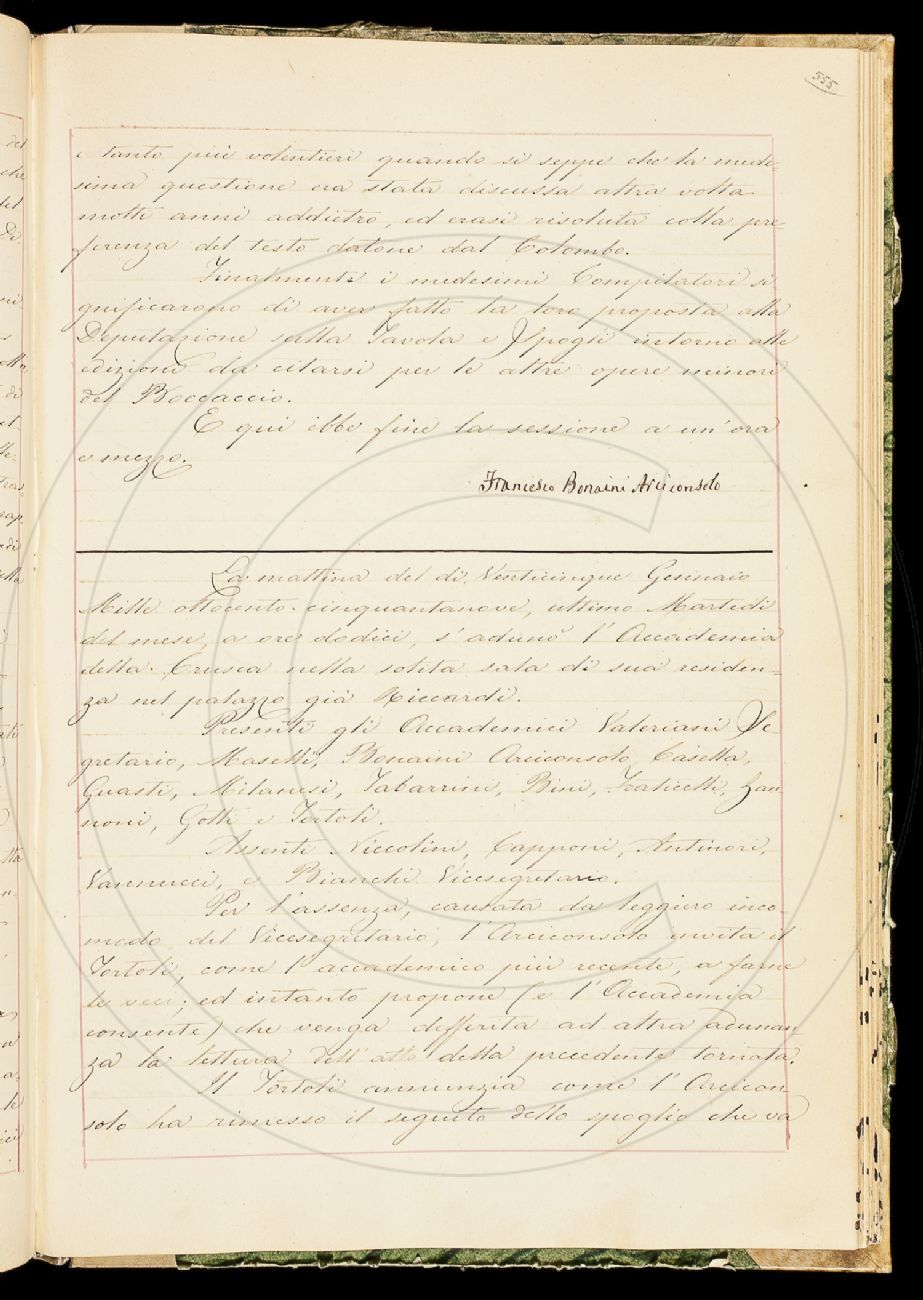 555
e tanto più volentieri quando si seppe che la mede=
sima questione era stata discussa altra volta
molti anni addietro, ed erasi risoluta colla pre
ferenza del testo datone dal Colombo.
Finalmente i medesimi Compilatori si
gnificarono di aver fatto la loro proposta alla
Deputazione sulla Tavola e Spogli intorno alle
edizioni da citarsi per le altre opere minori
del Boccaccio.
E qui ebbe fine la sessione a un'ora
e mezzo.
Francesco Bonaini Arciconsolo
La mattina del dì Venticinque Gennaio
Mille ottocento cinquantanove, ultimo Martedì
del mese, a ore dodici, s'adunò l'Accademia
della Crusca nella solita sala di sua residen=
za nel palazzo già Riccardi.
Presenti gli Accademici Valeriani Se
gretario, Maselli, Bonaini Arciconsolo, Casella,
Guasti, Milanesi, Tabarrini, Bini, Fraticelli, Zan
noni, Gotti e Tortoli.
Assenti Niccolini, Capponi, Antinori,
Vannucci, e Bianchi Vicesegretario.
Per l'assenza, causata da leggiero inco-
modo, del Vicesegretario, l'Arciconsolo invita il
Tortoli, come l'accademico più recente, a farne
le veci; ed intanto propone (e l'Accademia
consente) che venga differita ad altra adunan
za la lettura dell'atto della precedente tornata.
Il Tortoli annunzia come l'Arcicon
solo ha rimesso il seguito dello spoglio che va